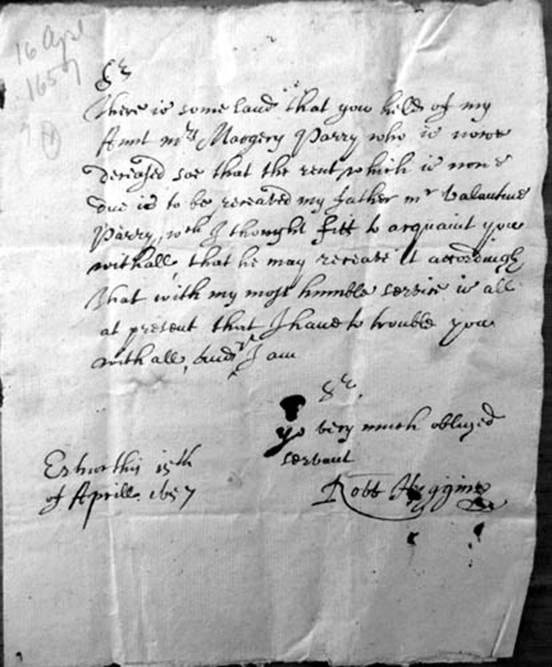 16 Apl
1657
Sr
There is some land that you held of my
Aunt mrs Margery Parry who is nowe
deceased soe that the rent which is nowe
due is to be receaved my father mr Valantine
Parry, wch I thought fitt to acquaint you
withall, that he may receave it accordingly
That with my most humble service is all
at present that I have to trouble you
withall, and I am
Sr
yor very much obliged
servant
15th
of Aprill 1657
Robt Higgins